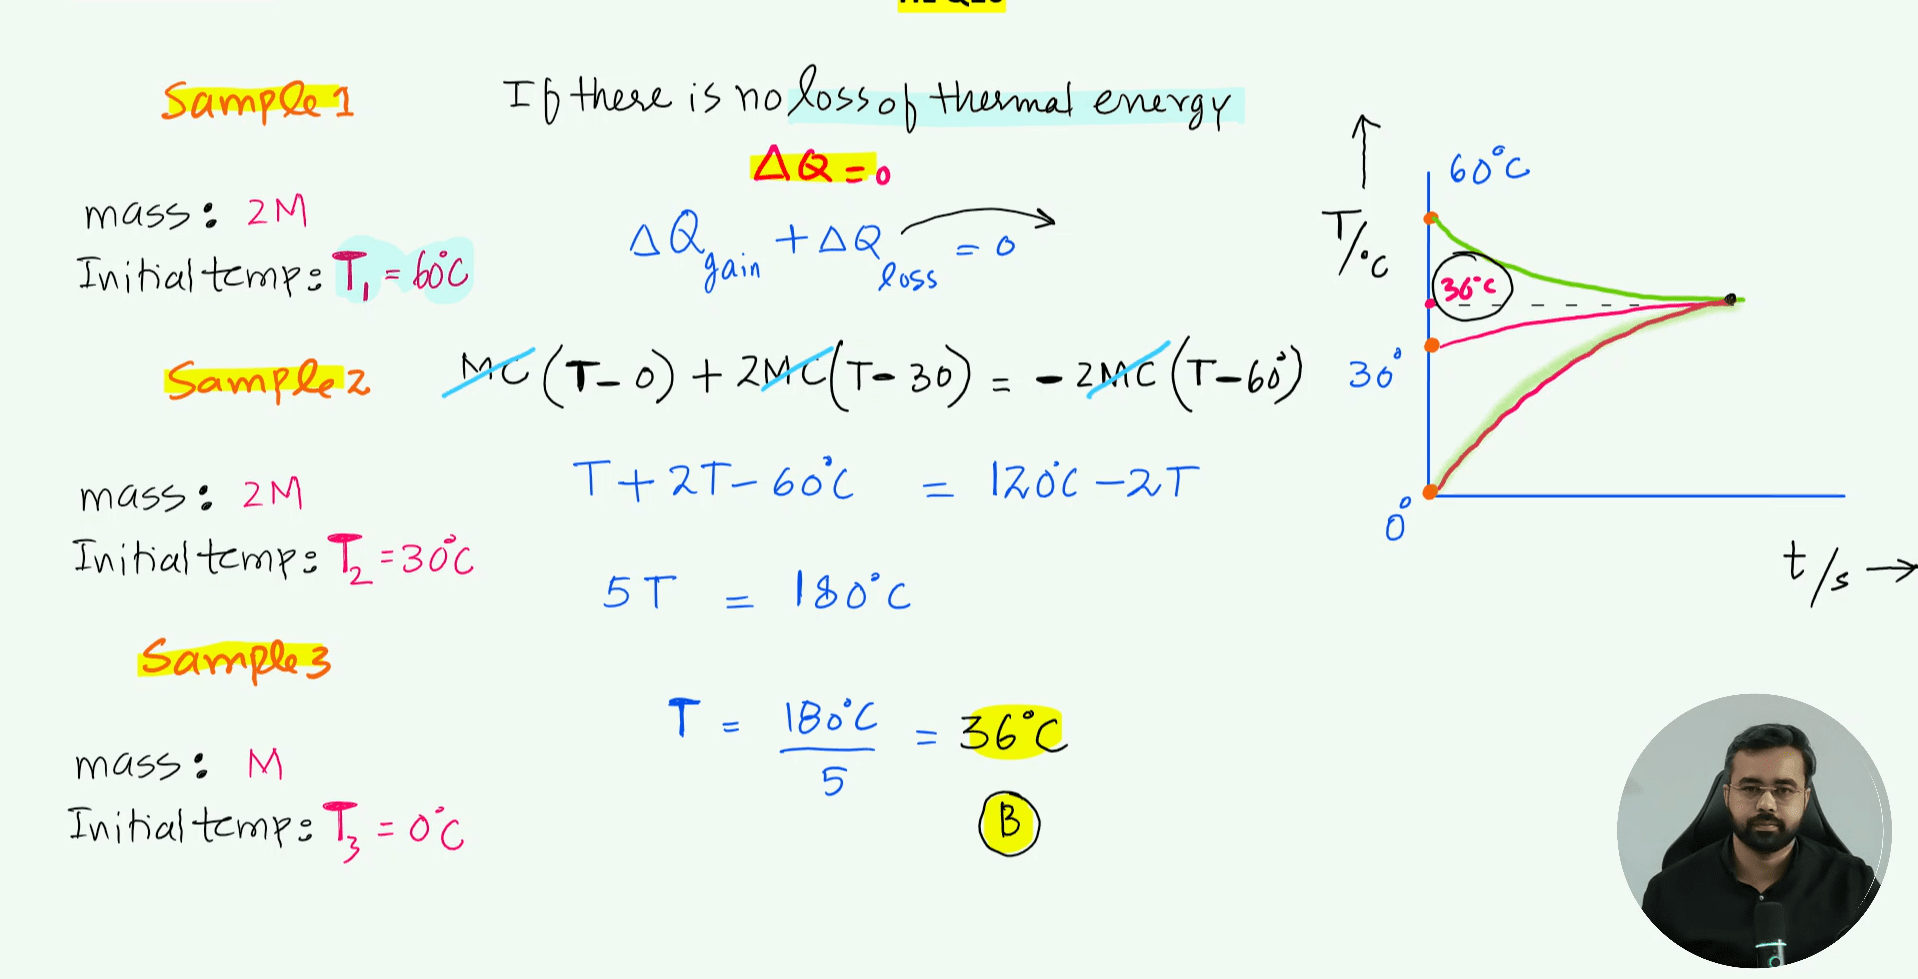 Sample 1
mass: 2M
Initial temp: T₁ = 60°C
Sample 2
mass: 2M
Initial temp: T₂ = 30°C
Sample 3
mass: M
Initial temp: T₃ = 0°C
If there is no loss of thermal energy
ΔQ = 0
ΔQ gain + ΔQ loss = 0
MC (T - 0) + 2MC (T - 30) = - 2MC (T - 60°)
T + 2T - 60°C = 120°C - 2T
5T = 180°C
T = 180°C / 5 = 36°C
B
T/°C
60°C
36°C
30°
0°
t/s